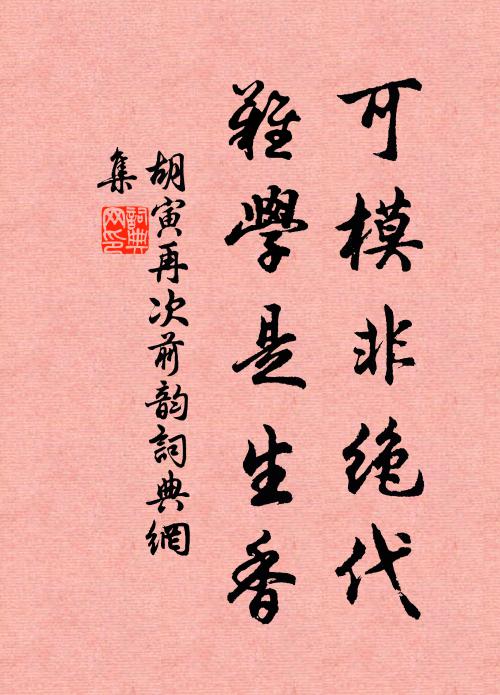 可模非绝代
難學是生香
胡寅再次前韵詞典網
集
詞典网印